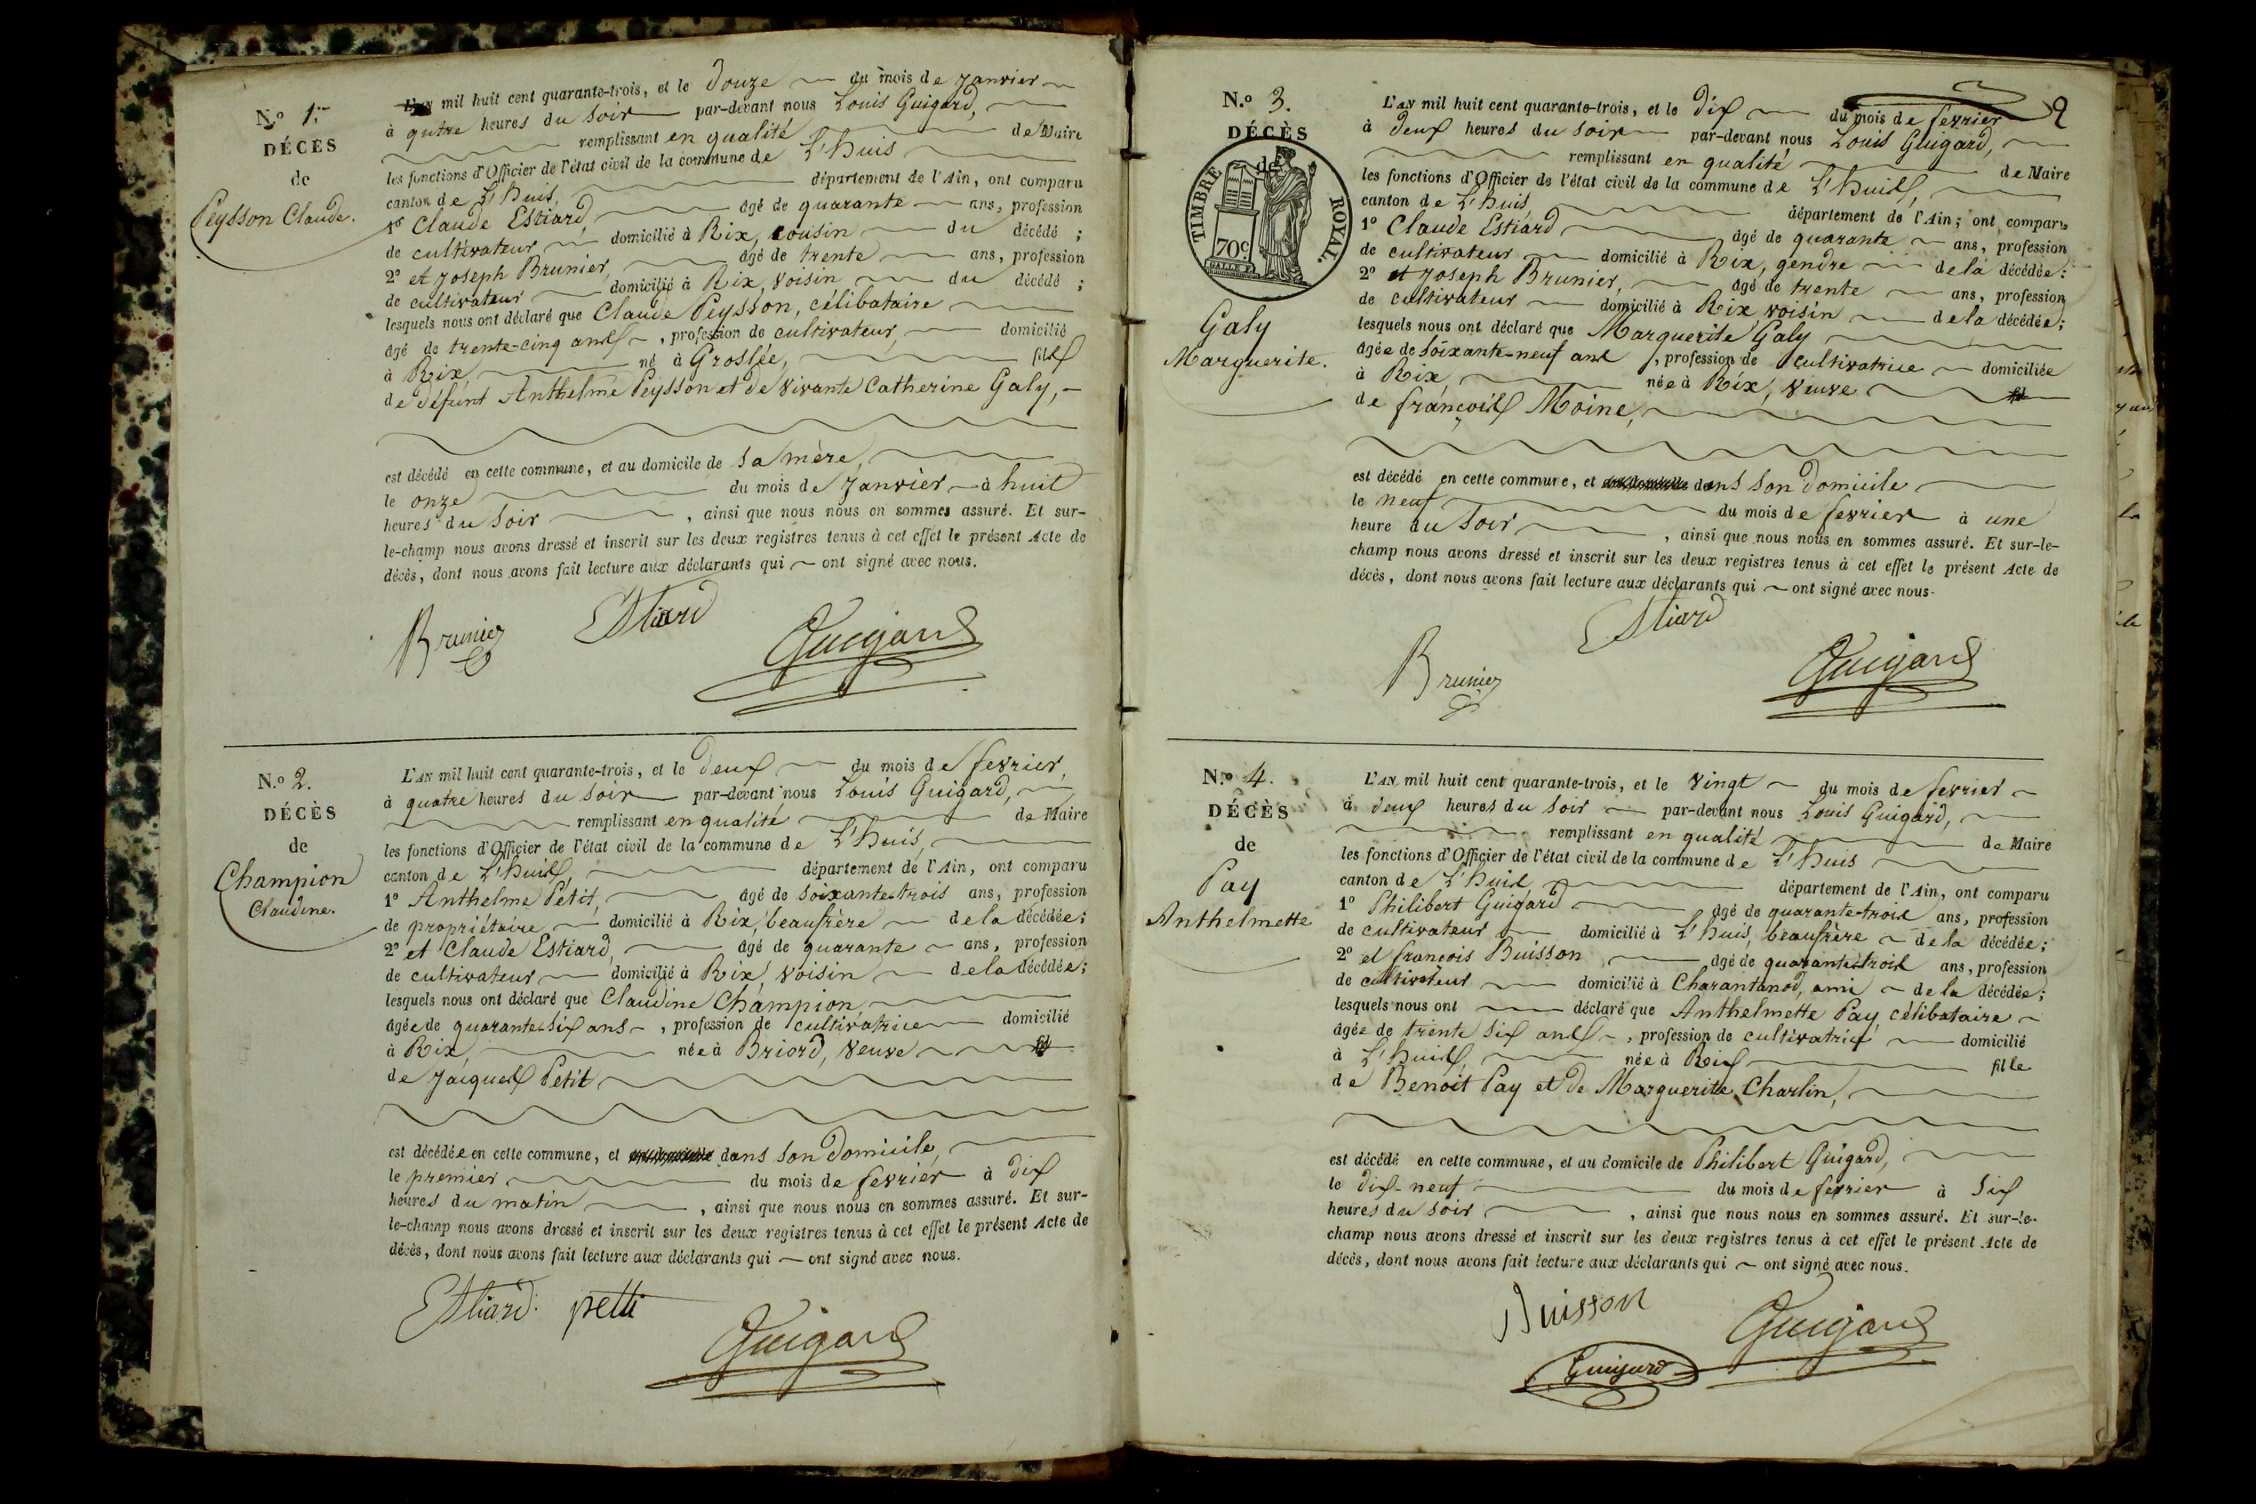 N.o 1er
DÉCÈS
de
Peysson Claude.
L'AN mil huit cent quarante-trois, et le douze du mois de Janvier
à qutre heures du soir par-devant nous Louis Guigard,
remplissant en qualité de Maire
les fonctions d'Officier de l'état civil de la commune de L'huis
canton de L'huis, département de l'Ain, ont comparu
1o Claude Estiard, agé de quarante ans, profession
de cultivateur domicilié à Rix, cousin du décédé ;
2o et Joseph Brunier, agé de trente ans, profession
de cultivateur domicilié à Rix, voisin du décédé ;
lesquels nous ont déclaré que Claude Peysson, célibataire
agé de trente-cinq ans, profession de cultivateur, domicilié
à Rix, né à Groslée, fils
de défunt Anthelme Peysson et de vivante Catherine Galy,
est décédé en cette commune, et au domicile de sa mère,
le onze du mois de Janvier à huit
heures du soir, ainsi que nous nous en sommes assuré. Et sur-
le-champ nous avons dressé et inscrit sur les deux registres tenus à cet effet le présent Acte de
décès, dont nous avons fait lecture aux déclarants qui ont signé avec nous.
Brunier Estiard Guigard
N.o 2.
DÉCÈS
de
Champion
Claudine.
L'AN mil huit cent quarante-trois, et le deux du mois de fevrier,
à quatre heures du soir par-devant nous Louis Guigard,
remplissant en qualité de Maire
les fonctions d'Officier de l'état civil de la commune de L'huis,
canton de L'huis, département de l'Ain, ont comparu
1o Anthelme Petit, agé de soixante-trois ans, profession
de propriétaire, domicilié à Rix, beaufrère de la décédée ;
2o et Claude Estiard, agé de quarante ans, profession
de cultivateur domicilié à Rix, voisin de la décédée ;
lesquels nous ont déclaré que Claudine Champion,
agée de quarante-six ans, profession de cultivatrice domicilié
à Rix, née à Briord, veuve
de Jacques Petit
est décédée en cette commune, et dans son domicile,
le premier du mois de fevrier à dix
heures du matin, ainsi que nous nous en sommes assuré. Et sur-
le-champ nous avons dressé et inscrit sur les deux registres tenus à cet effet le présent Acte de
décès, dont nous avons fait lecture aux déclarants qui ont signé avec nous.
Estiard. petti Guigard
2
N.o 3.
DÉCÈS
de
TIMBRE ROYAL.
70c
Galy
Marguerite.
L'AN mil huit cent quarante-trois, et le dix du mois de fevrier
à deux heures du soir par-devant nous Louis Guigard,
remplissant en qualité de Maire
les fonctions d'Officier de l'état civil de la commune de L'huis,
canton de L'huis, département de l'Ain ; ont comparu
1o Claude Estiard agé de quarante ans, profession
de cultivateur domicilié à Rix, gendre de la décédée ;
2o et Joseph Brunier, agé de trente ans, profession
de cultivateur domicilié à Rix voisin de la décédée ;
lesquels nous ont déclaré que Marguerite Galy
agée de soixante-neuf ans, profession de cultivatrice domiciliée
à Rix, née à Rix, veuve
de françois Moine,
est décédé en cette commune, et dans son domicile
le neuf du mois de fevrier à une
heure du soir, ainsi que nous nous en sommes assuré. Et sur-le-
champ nous avons dressé et inscrit sur les deux registres tenus à cet effet le présent Acte de
décès, dont nous avons fait lecture aux déclarants qui ont signé avec nous.
Brunier Estiard Guigard
N.o 4.
DÉCÈS
de
Pay
Anthelmette
L'AN mil huit cent quarante-trois, et le vingt du mois de fevrier
à deux heures du soir par-devant nous Louis Guigard,
remplissant en qualité de Maire
les fonctions d'Officier de l'état civil de la commune de L'huis
canton de L'huis, département de l'Ain, ont comparu
1o Philibert Guigard agé de quarante-trois ans, profession
de cultivateur domicilié à L'huis, beaufrère de la décédée ;
2o et francois Buisson agé de quarante-trois ans, profession
de cultivateur domicilié à Charantanod, ami de la décédée ;
lesquels nous ont déclaré que Anthelmette Pay célibataire
agée de trente six ans, profession de cultivatrice domicilié
à L'huis, née à Rix fille
de Benoit Pay et de Marguerite Charlin,
est décédé en cette commune, et au domicile de Philibert Guigard,
le dix-neuf du mois de fevrier à six
heures du soir, ainsi que nous nous en sommes assuré. Et sur-le-
champ nous avons dressé et inscrit sur les deux registres tenus à cet effet le présent Acte de
décès, dont nous avons fait lecture aux déclarants qui ont signé avec nous.
Buisson Guigard
Guigard